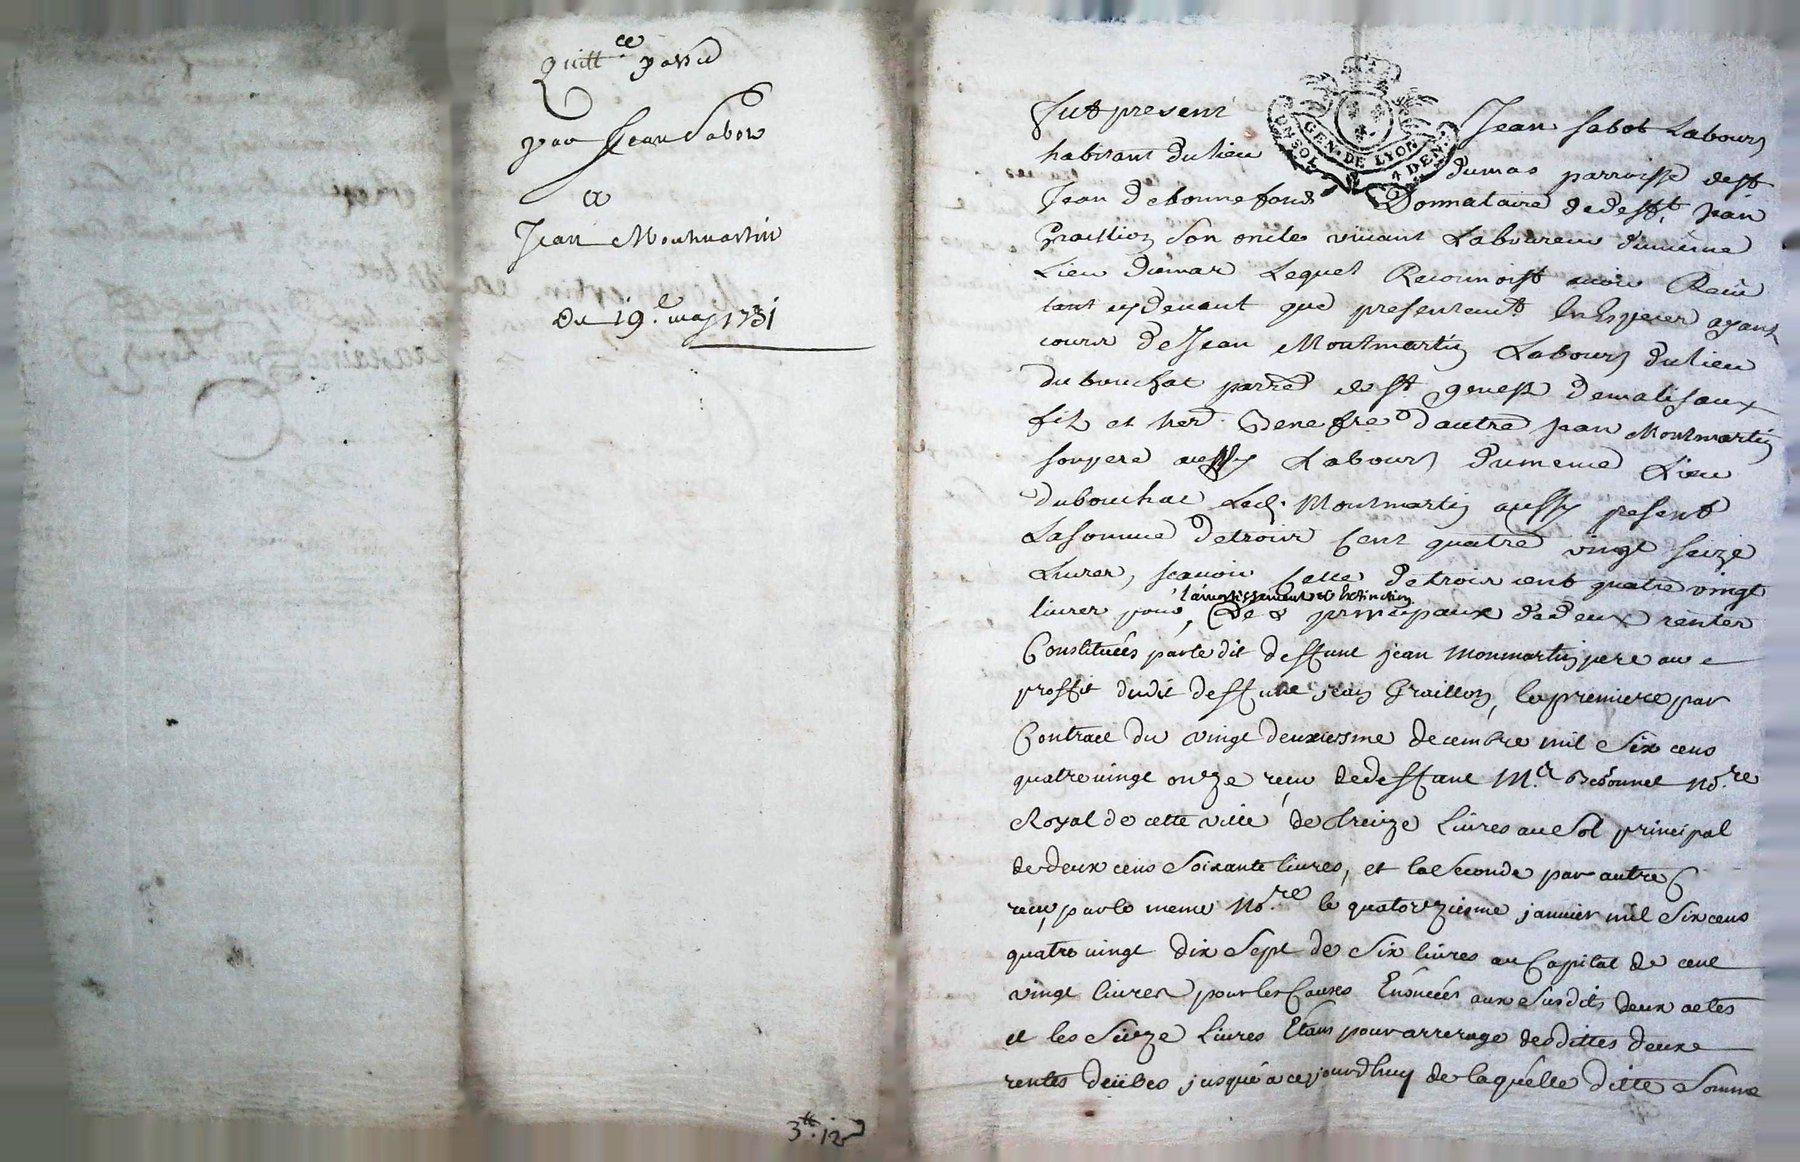 Quitt.ce passé
par Jean Sabot
a
Jean Monmartin
Du 19.e may 1731
3tt. 12
GEN. DE LYON
UN SOL 4 DEN.
Fut present Jean Sabot Labour
habitant du lieu dumas parroisse de st
Jean de bonnefond Donnataire de defft Jean
Graillion son oncle vivant Laboureur dumeme
Lieu dumas Lequel Reconnoist avoir Receu
tant cydevant que presentemt En Especes ayant
cours de Jean Montmartin Labour du lieu
du bouchat parre de st genest de malifaux
fils et her. d'autre Jean Montmartin
son pere aussy Labour dumeme Lieu
dubouchat Led. Montmartin aussy present
La somme de trois Cent quatre vingt seize
Livres, scavoir Celle de trois cent quatre vingt
l'amortissement & Extinction
livres pour, Des principaux de deux rentes
Constituées par le dit deffunt jean monmartin pere au
proffit dudit deffunt jean Graillon, la premiere par
Contract du vingt deuxiesme decembre mil six cens
quatre vingt onze recu de deffunt M.e No.re
Royal de cette ville de treize Livres au sol principal
de deux cens soixante livres, et la seconde par autre C
recu par le meme No.re le quatorziesme janvier mil six cens
quatre vingt dix sept de six livres au Capital de cent
vingt livres pour les Causes Enoncées aux susdits deux actes
et les seize Livres Etant pour arrerage desdittes deux
rentes deües jusqué a ce jourdhuy de laquelle ditte somme